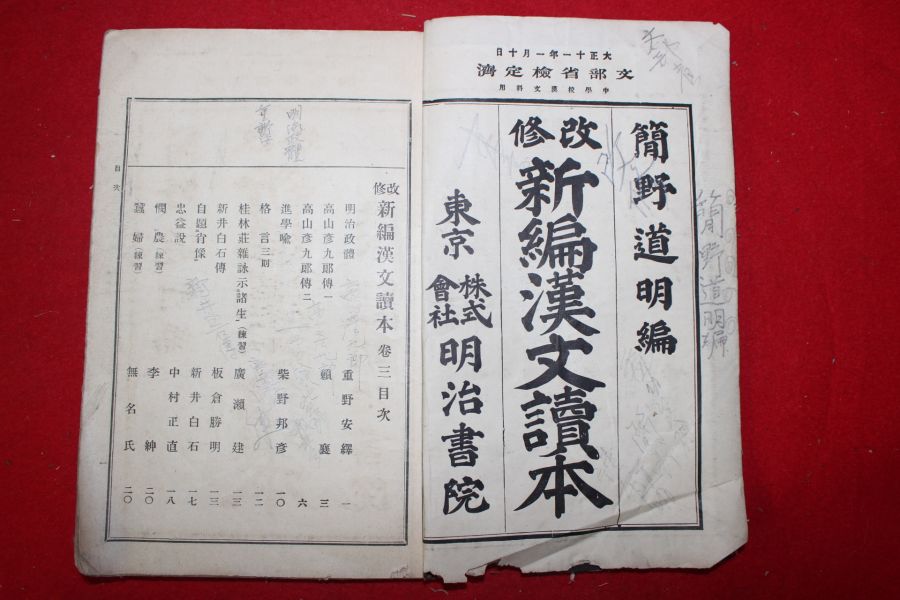 大正十一年一月十日
文部省檢定濟
中學校漢文科用
簡野道明編
改修
新編漢文讀本
東京
株式會社
明治書院
簡野道明編
改修 新編漢文讀本 卷三目次
明治政體 重野安繹 一
高山彥九郎傳一 賴襄 三
高山彥九郎傳二 六
進學喩 柴野邦彥 一〇
格言三則 一二
桂林莊雜詠示諸生(練習) 廣瀨建 一三
新井白石傳 板倉勝明 一三
自題肖像 新井白石 一七
忠益說 中村正直 一八
憫農(練習) 李紳 二〇
蠶婦(練習) 無名氏 二〇
目次